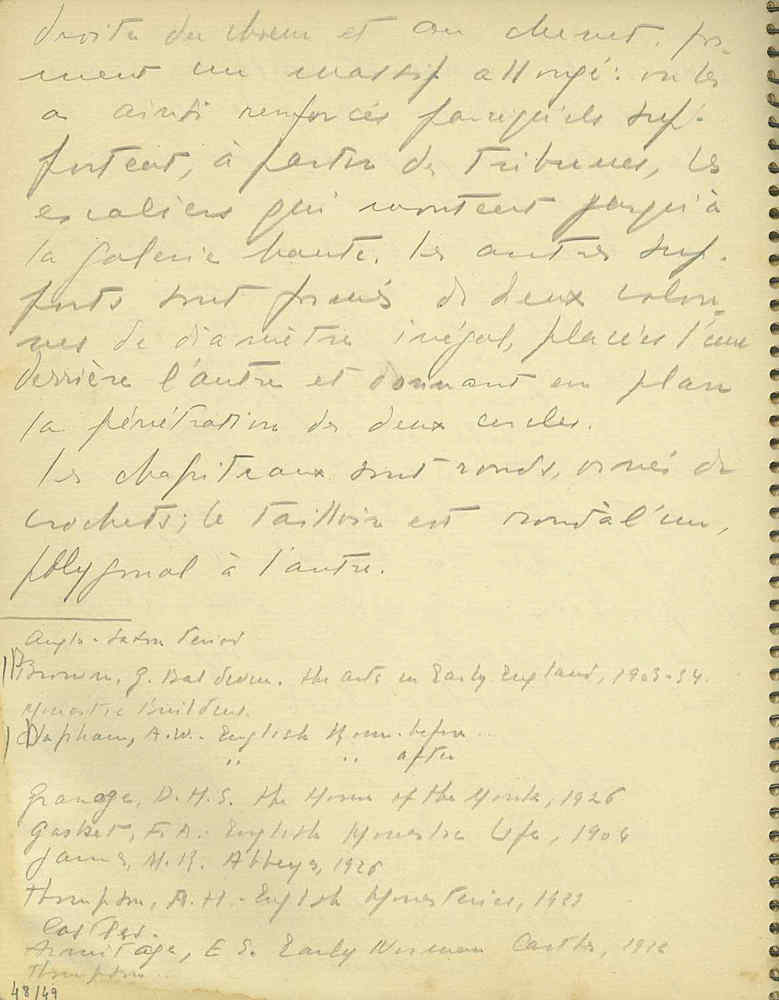 droite du choeur et au chevet, for-
ment un massif allongé: on les
a ainsi renforcés parcequ'ils sup-
portent, à partir des tribunes, les
escaliers qui montent jusqu'à
la galerie haute. Les autres sup-
ports sont formés de deux colon-
nes de diamètre inégal, placées l'une
derrière l'autre et donnant en plan
la pénétration de deux cercles.
Les chapiteaux sont ronds, ornés de
crochets; le tailloir est rond à l'un,
polygonal à l'autre.
Anglo-Saxon Period
Brown, G. Baldwin. The arts in Early England, 1903-34.
Monastic Buildings.
Clapham, A.W. - English Rom. before ...
" " after
D.H.S. The Home of the Monk, 1926
Gasquet, F.A. - English Monastic Life, 1904
James, M.R. Abbeys, 1926
Thompson, A.H. - English Monasteries, 1923
Castles.
Armitage, E.S. Early Norman Castles, 1912
Thompson ...
48/49